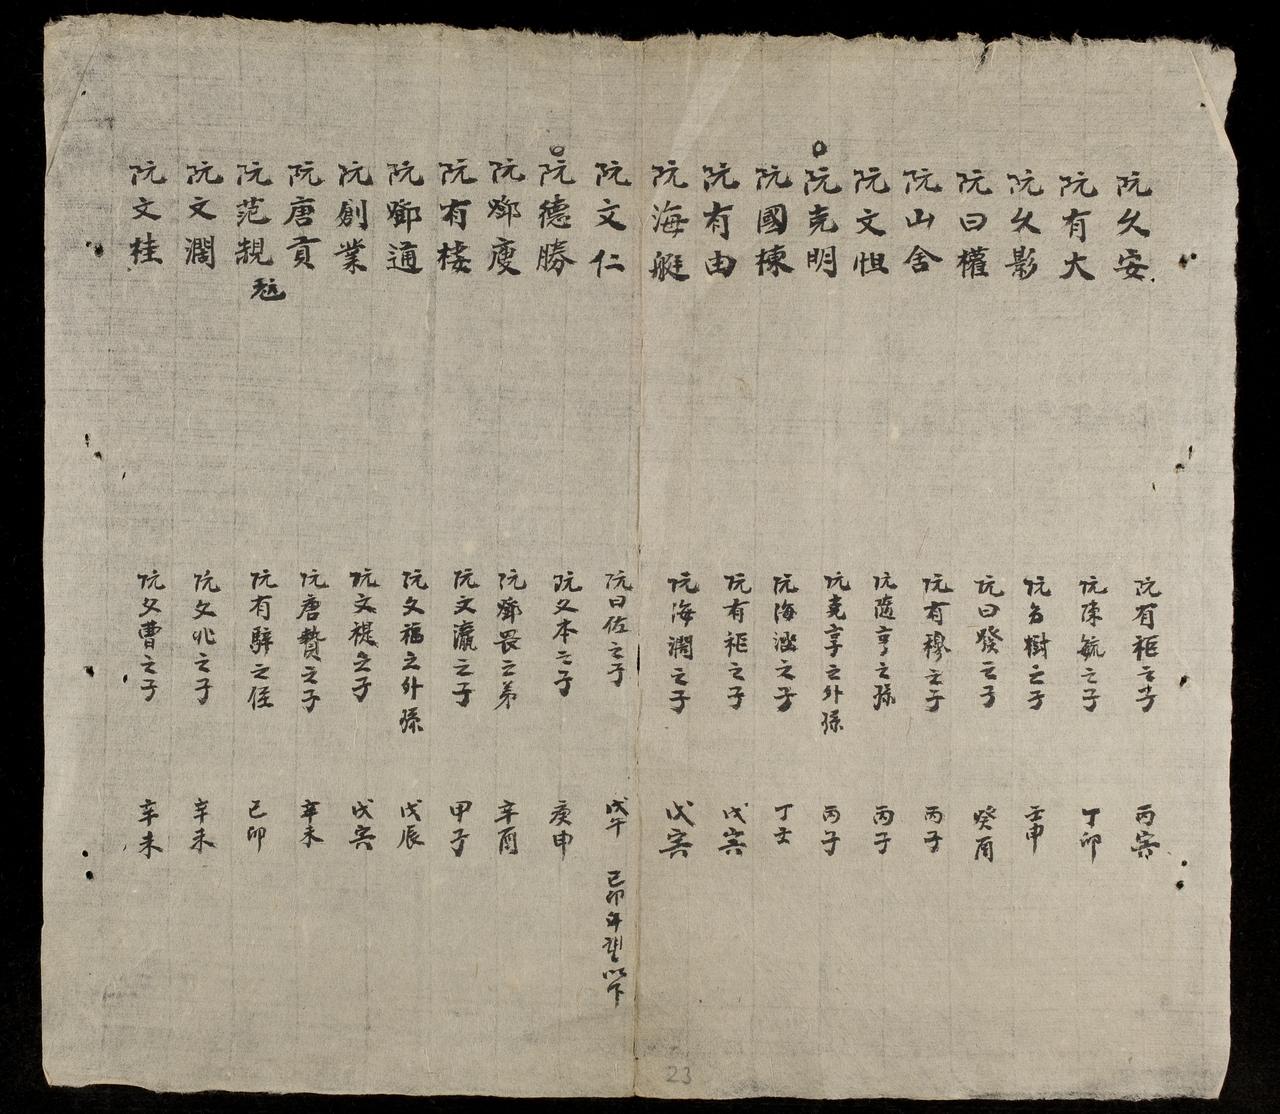 阮久安 阮有柜之子 丙寅
阮有大 阮陳毓之子 丁卯
阮久影 阮台樹之子 壬申
阮曰權 阮曰發之子 癸酉
阮山舍 阮有穆之子 丙子
阮文怛 阮隨亨之孫 丙子
阮克明 阮克享之外孫 丙子
阮國棟 阮海涵之子 丁丑
阮有由 阮有柜之子 戊寅
阮海艇 阮海濶之子 戊寅
阮文仁 阮曰佐之子 戊午 己卯年 以下
阮德勝 阮文本之子 庚申
阮鄧度 阮鄧畏之弟 辛酉
阮有棲 阮文瀛之子 甲子
阮鄧通 阮文福之外孫 戊辰
阮創業 阮文禔之子 戊寅
阮唐貢 阮唐贊之子 辛未
阮范覩 阮有驊之侄 己卯
阮文濶 阮文兆之子 辛未
阮文桂 阮文曹之子 辛未
23